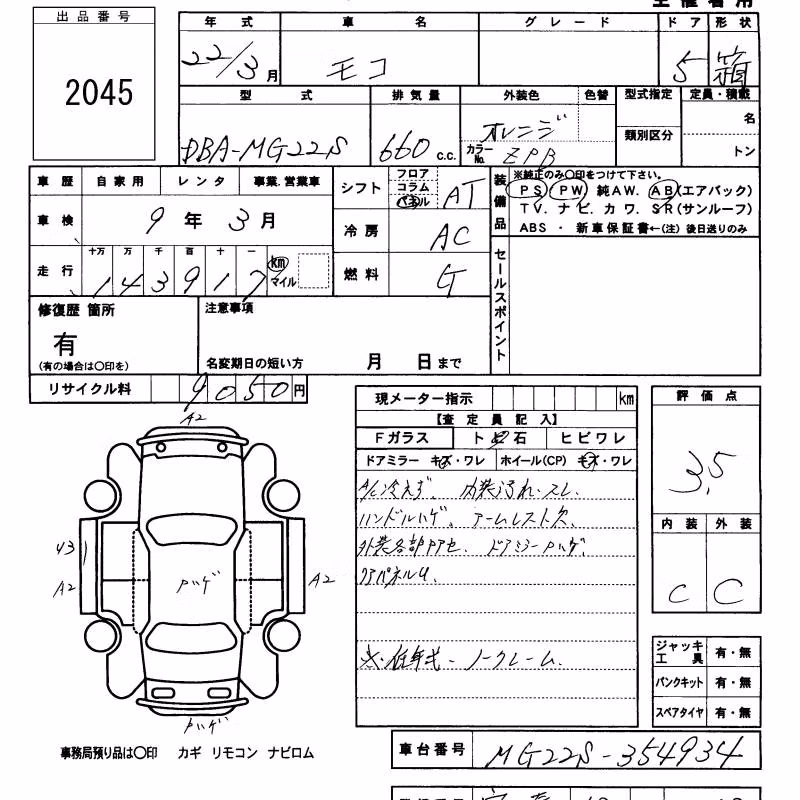 出品番号
2045
年式 車名 グレード ドア 形状
22/3月 モコ 5 箱
型式 排気量 外装色 色替 型式指定 定員・積載
DBA-MG22S 660 c.c. オレンジ 類別区分 名
カラーNo. ZPB トン
車歴 自家用 レンタ 事業.営業車
車検 9年3月
走行 十万 万 千 百 十 一 km マイル
143917
シフト フロア コラム パネル AT
冷房 AC
燃料 G
装備品
※純正のみ○印をつけて下さい。
PS PW 純AW. AB(エアバック)
TV. ナビ. カワ. SR(サンルーフ)
ABS ・ 新車保証書←(注) 後日送りのみ
セールスポイント
修復歴 箇所
有
(有の場合は○印を)
注意事項
名変期日の短い方 月 日まで
リサイクル料 9050円
現メーター指示 km
【査定員記入】
Fガラス ト 石 ヒビワレ
ドアミラー キズ・ワレ ホイール(CP) キズ・ワレ
A/C冷えず、内装汚れ・スレ
ハンドルハゲ、アームレスト欠
外装各部Pアセ、ドアミラーPハゲ、
リアパネルU.
※.低年式・ノークレーム.
評価点
3.5
内装 外装
C C
A2
U3
A2
Pハゲ
A2
Pハゲ
ジャッキ工具 有・無
パンクキット 有・無
スペアタイヤ 有・無
事務局預り品は○印 カギ リモコン ナビロム
車台番号 MG22S-354934